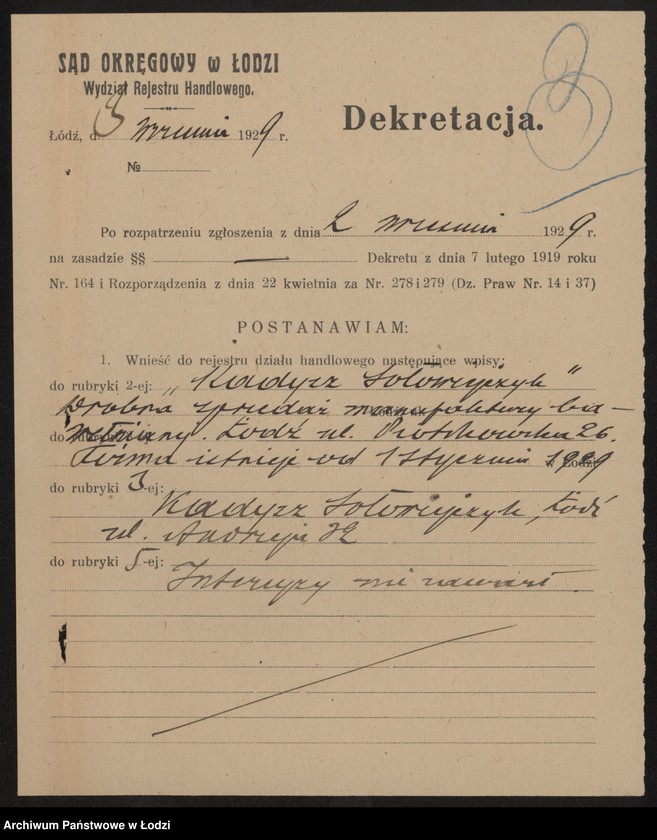 SĄD OKRĘGOWY w ŁODZI
Wydział Rejestru Handlowego.
3
Łódź, d. 3 wrzesnia 1929 r.
Dekretacja.
№
Po rozpatrzeniu zgłoszenia z dnia 2 wrzesnia 1929 r.
na zasadzie §§ — Dekretu z dnia 7 lutego 1919 roku
Nr. 164 i Rozporządzenia z dnia 22 kwietnia za Nr. 278 i 279 (Dz. Praw Nr. 14 i 37)
POSTANAWIAM:
1. Wnieść do rejestru działu handlowego następujące wpisy:
do rubryki 2-ej: „Kadysz Sołowiejczyk"
Drobna sprzedaż manufaktury ba-
do wełniany. Łódź ul. Piotrkowska 26.
Firma istnieje od 1 stycznia 1929
w Łodzi
do rubryki 3-ej:
Kadysz Sołowiejczyk, Łódź
ul. Andrzeja 32
do rubryki 5-ej:
Intercyzy nie zawarł.
Archiwum Państwowe w Łodzi